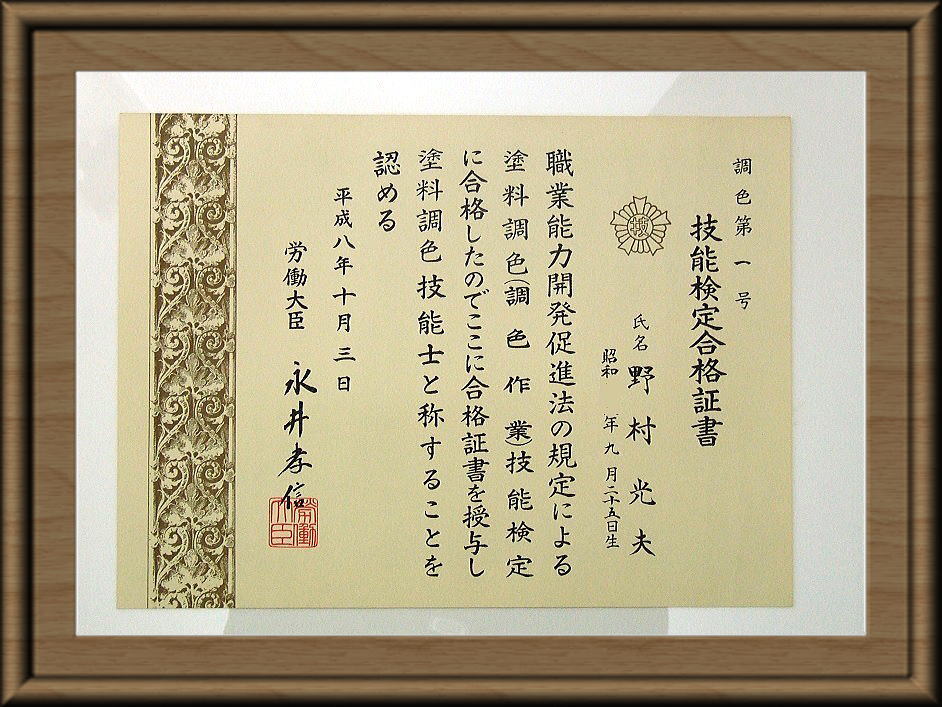 調色第一号
技能検定合格証書
技
氏名 野村光夫
昭和 年九月二十五日生
職業能力開発促進法の規定による
塗料調色(調色作業)技能検定
に合格したのでここに合格証書を授与し
塗料調色技能士と称することを
認める
平成八年十月三日
労働大臣 永井孝信
労働大臣